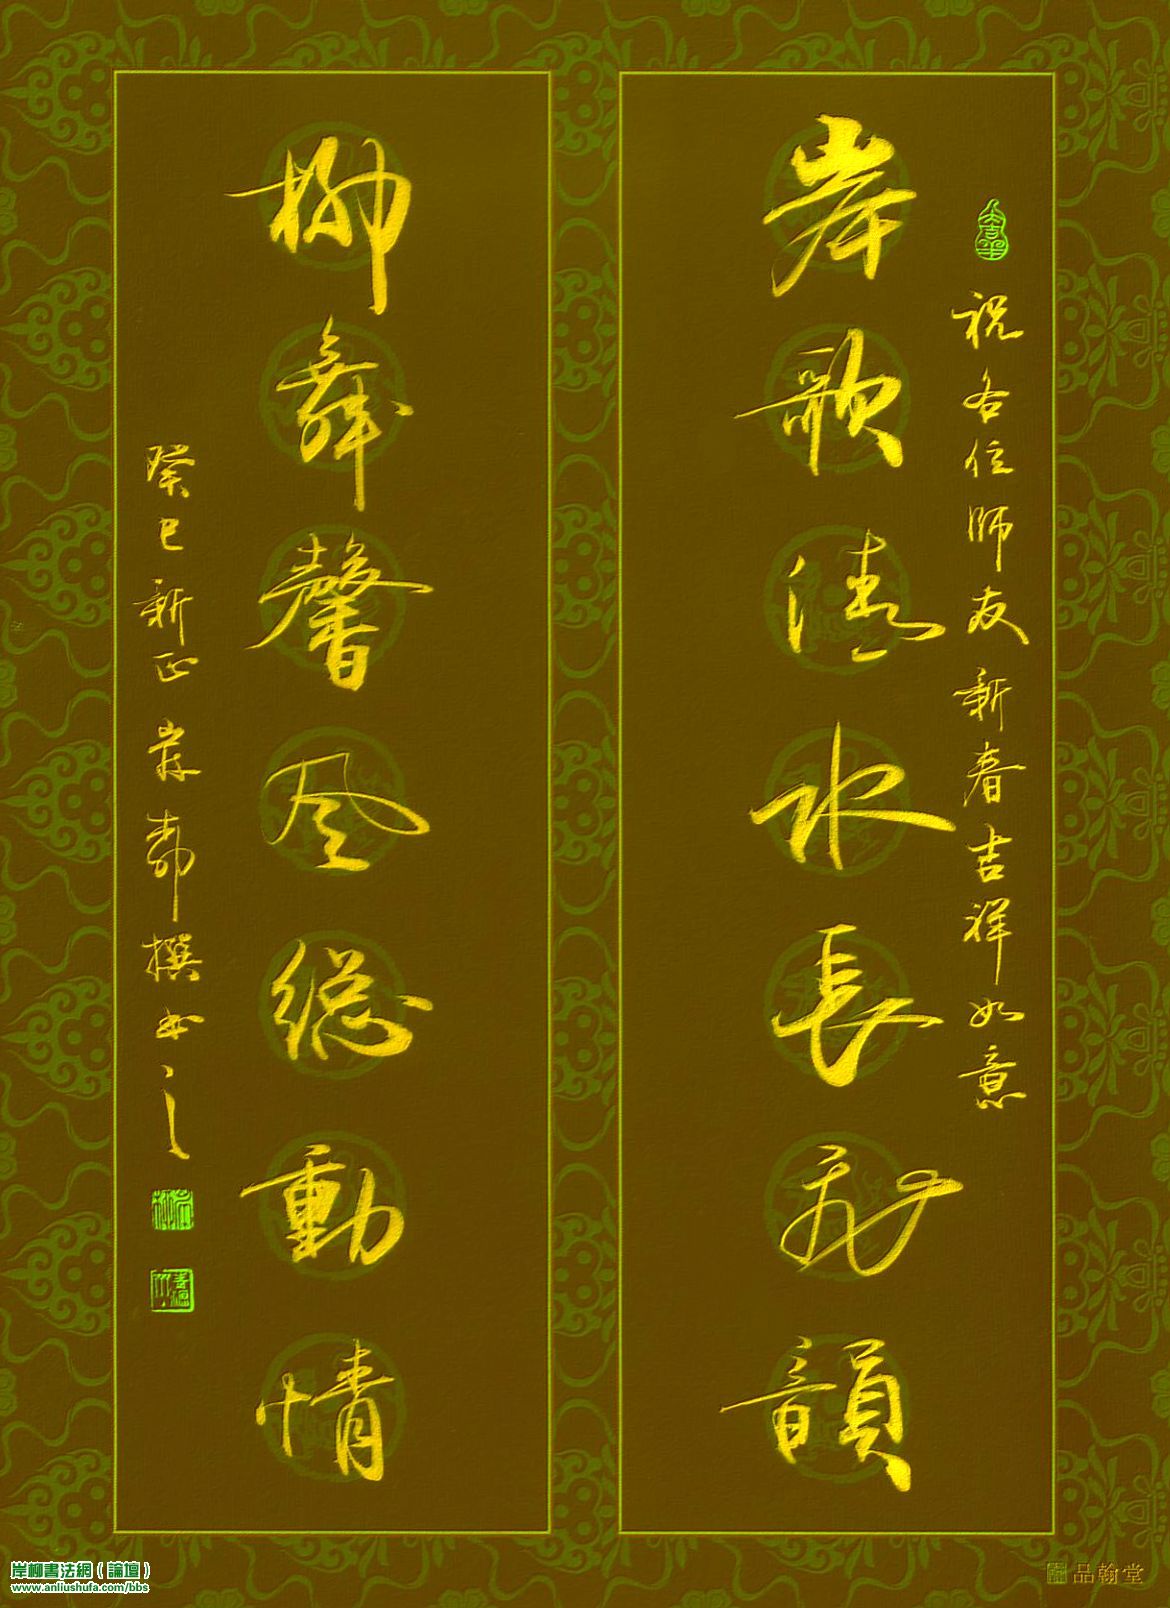 祝各位師友新春吉祥如意
岸歌清水長和韻
柳舞馨风総動情
癸巳新正 撰书之
岸柳書法網（論壇）
www.anliushufa.com/bbs
品翰堂